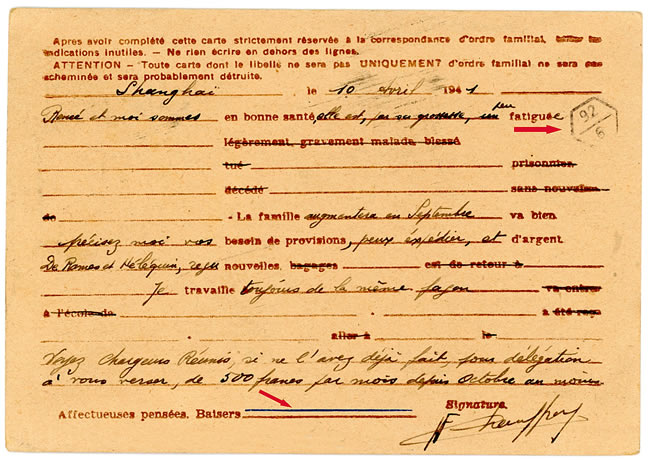 Apres avoir complété cette carte strictement réservée à la correspondance d'ordre familial,
indications inutiles. — Ne rien écrire en dehors des lignes.
ATTENTION - Toute carte dont le libelle ne sera pas UNIQUEMENT d'ordre familial ne sera pas
acheminée et sera probablement détruite.
Shanghaï le 10 Avril 1941
Renée et moi sommes en bonne santé, elle est, par sa grossesse, un peu fatiguée
92
6
légèrement, gravement malade, blessé
tué prisonnier
décédé sans nouvelles
de - La famille augmentera en Septembre va bien
précisez moi vos besoin de provisions, peux expédier, et d'argent
De Rames et Héléguin, reçu nouvelles, bagages est de retour à
Je travaille toujours de la même façon va entrer
à l'école de a été reçu
aller à le
Voyez Chargeurs Réunis, si ne l'avez déjà fait, pour délégation
à vous verser, de 500 francs par mois depuis Octobre au moins
Affectueuses pensées. Baisers Signature